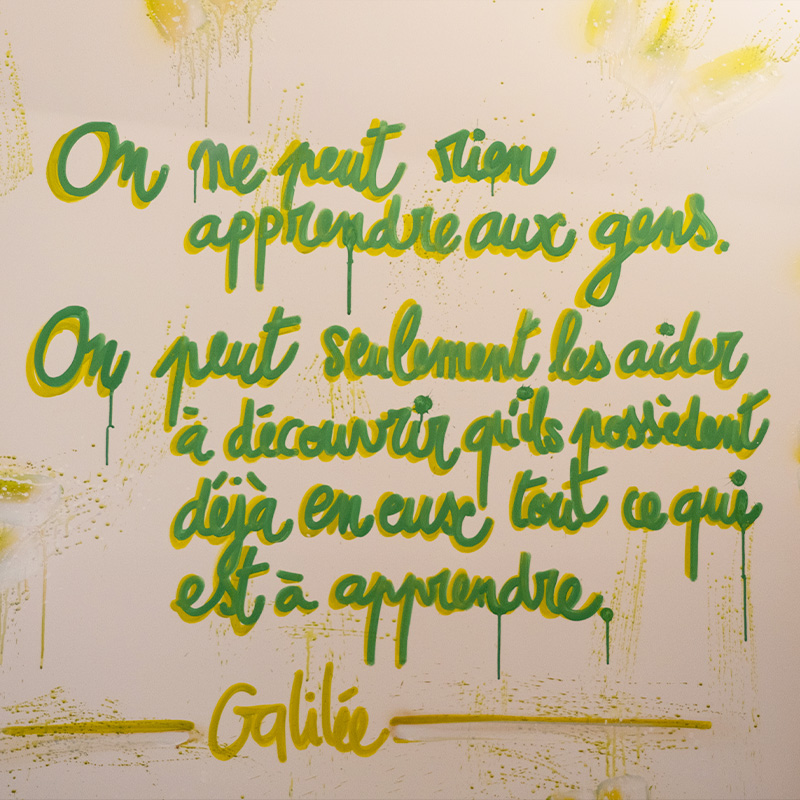 On ne peut rien
apprendre aux gens.
On peut seulement les aider
à découvrir qu'ils possèdent
déjà en eux tout ce qui
est à apprendre.
Galilée